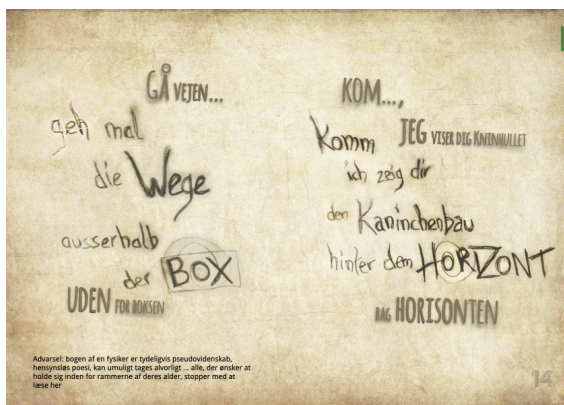 GÅ VEJEN...
geh mal
die Wege
ausserhalb
der BOX
UDEN FOR BOKSEN
KOM...,
Komm JEG VISER DIG KNINHULLET
ich zeig dir
den Kaninchenbau
hinter dem HORIZONT
BAG HORISONTEN
Advarsel: bogen af en fysiker er tydeligvis pseudovidenskab,
hensynsløs poesi, kan umuligt tages alvorligt ... alle, der ønsker at
holde sig inden for rammerne af deres alder, stopper med at
læse her
14